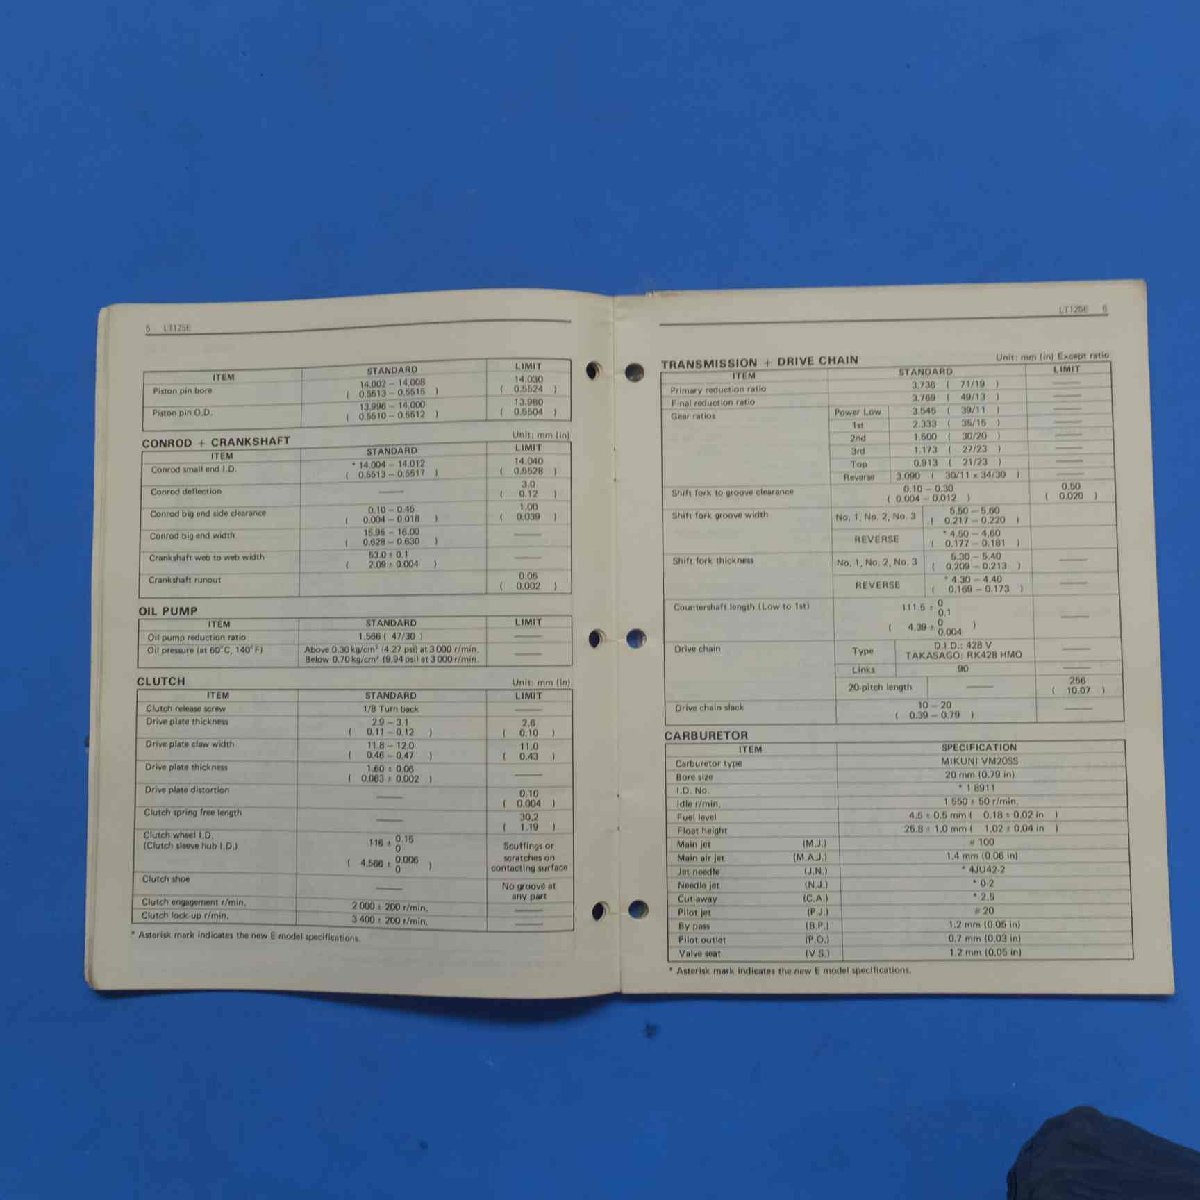 5 LT125E
ITEM STANDARD LIMIT
Piston pin bore 14.002 – 14.008 14.030
( 0.5513 – 0.5515 ) ( 0.5524 )
Piston pin O.D. 13.996 – 14.000 13.980
( 0.5510 – 0.5512 ) ( 0.5504 )
CONROD + CRANKSHAFT Unit: mm (in)
ITEM STANDARD LIMIT
Conrod small end I.D. * 14.004 – 14.012 14.040
( 0.5513 – 0.5517 ) ( 0.5528 )
Conrod deflection —— 3.0
( 0.12 )
Conrod big end side clearance 0.10 – 0.45 1.00
( 0.004 – 0.018 ) ( 0.039 )
Conrod big end width 15.95 – 16.00 ——
( 0.628 – 0.630 )
Crankshaft web to web width 53.0 ± 0.1 ——
( 2.09 ± 0.004 )
Crankshaft runout —— 0.05
( 0.002 )
OIL PUMP
ITEM STANDARD LIMIT
Oil pump reduction ratio 1.566 ( 47/30 ) ——
Oil pressure (at 60°C, 140°F) Above 0.30 kg/cm² (4.27 psi) at 3 000 r/min. ——
Below 0.70 kg/cm² (9.94 psi) at 3 000 r/min.
CLUTCH Unit: mm (in)
ITEM STANDARD LIMIT
Clutch release screw 1/8 Turn back ——
Drive plate thickness 2.9 – 3.1 2.6
( 0.11 – 0.12 ) ( 0.10 )
Drive plate claw width 11.8 – 12.0 11.0
( 0.46 – 0.47 ) ( 0.43 )
Drive plate thickness 1.60 ± 0.06 ——
( 0.063 ± 0.002 )
Drive plate distortion —— 0.10
( 0.004 )
Clutch spring free length —— 30.2
( 1.19 )
Clutch wheel I.D. 116 + 0.15 Scuffings or
(Clutch sleeve hub I.D.) 0 scratches on
( 4.566 + 0.006 ) contacting surface
0
Clutch shoe —— No groove at
any part
Clutch engagement r/min. 2 000 ± 200 r/min. ——
Clutch lock-up r/min. 3 400 ± 200 r/min. ——
* Asterisk mark indicates the new E model specifications.
LT125E 6
TRANSMISSION + DRIVE CHAIN Unit: mm (in) Except ratio
ITEM STANDARD LIMIT
Primary reduction ratio 3.736 ( 71/19 ) ——
Final reduction ratio 3.769 ( 49/13 ) ——
Gear ratios Power Low 3.545 ( 39/11 ) ——
1st 2.333 ( 35/15 ) ——
2nd 1.500 ( 30/20 ) ——
3rd 1.173 ( 27/23 ) ——
Top 0.913 ( 21/23 ) ——
Reverse 3.090 ( 30/11 x 34/30 ) ——
Shift fork to groove clearance 0.10 – 0.30 0.50
( 0.004 – 0.012 ) ( 0.020 )
Shift fork groove width No. 1, No. 2, No. 3 5.50 – 5.60 ——
( 0.217 – 0.220 )
REVERSE * 4.50 – 4.60 ——
( 0.177 – 0.181 )
Shift fork thickness No. 1, No. 2, No. 3 5.30 – 5.40 ——
( 0.209 – 0.213 )
REVERSE * 4.30 – 4.40 ——
( 0.169 – 0.173 )
Countershaft length (Low to 1st) 111.5 0 ——
0.1
( 4.39 0 )
0.004
Drive chain Type D.I.D.: 428 V ——
TAKASAGO: RK428 HMO
Links 90 ——
20-pitch length —— 256
( 10.07 )
Drive chain slack 10 – 20 ——
( 0.39 – 0.79 )
CARBURETOR
ITEM SPECIFICATION
Carburetor type MIKUNI VM20SS
Bore size 20 mm (0.79 in)
I.D. No. * 18911
Idle r/min. 1 550 ± 50 r/min.
Fuel level 4.5 ± 0.5 mm ( 0.18 ± 0.02 in )
Float height 25.8 ± 1.0 mm ( 1.02 ± 0.04 in )
Main jet (M.J.) # 100
Main air jet (M.A.J.) 1.4 mm (0.06 in)
Jet needle (J.N.) * 4JU42-2
Needle jet (N.J.) * 0-2
Cut-away (C.A.) * 2.5
Pilot jet (P.J.) # 20
By pass (B.P.) 1.2 mm (0.05 in)
Pilot outlet (P.O.) 0.7 mm (0.03 in)
Valve seat (V.S.) 1.2 mm (0.05 in)
* Asterisk mark indicates the new E model specifications.